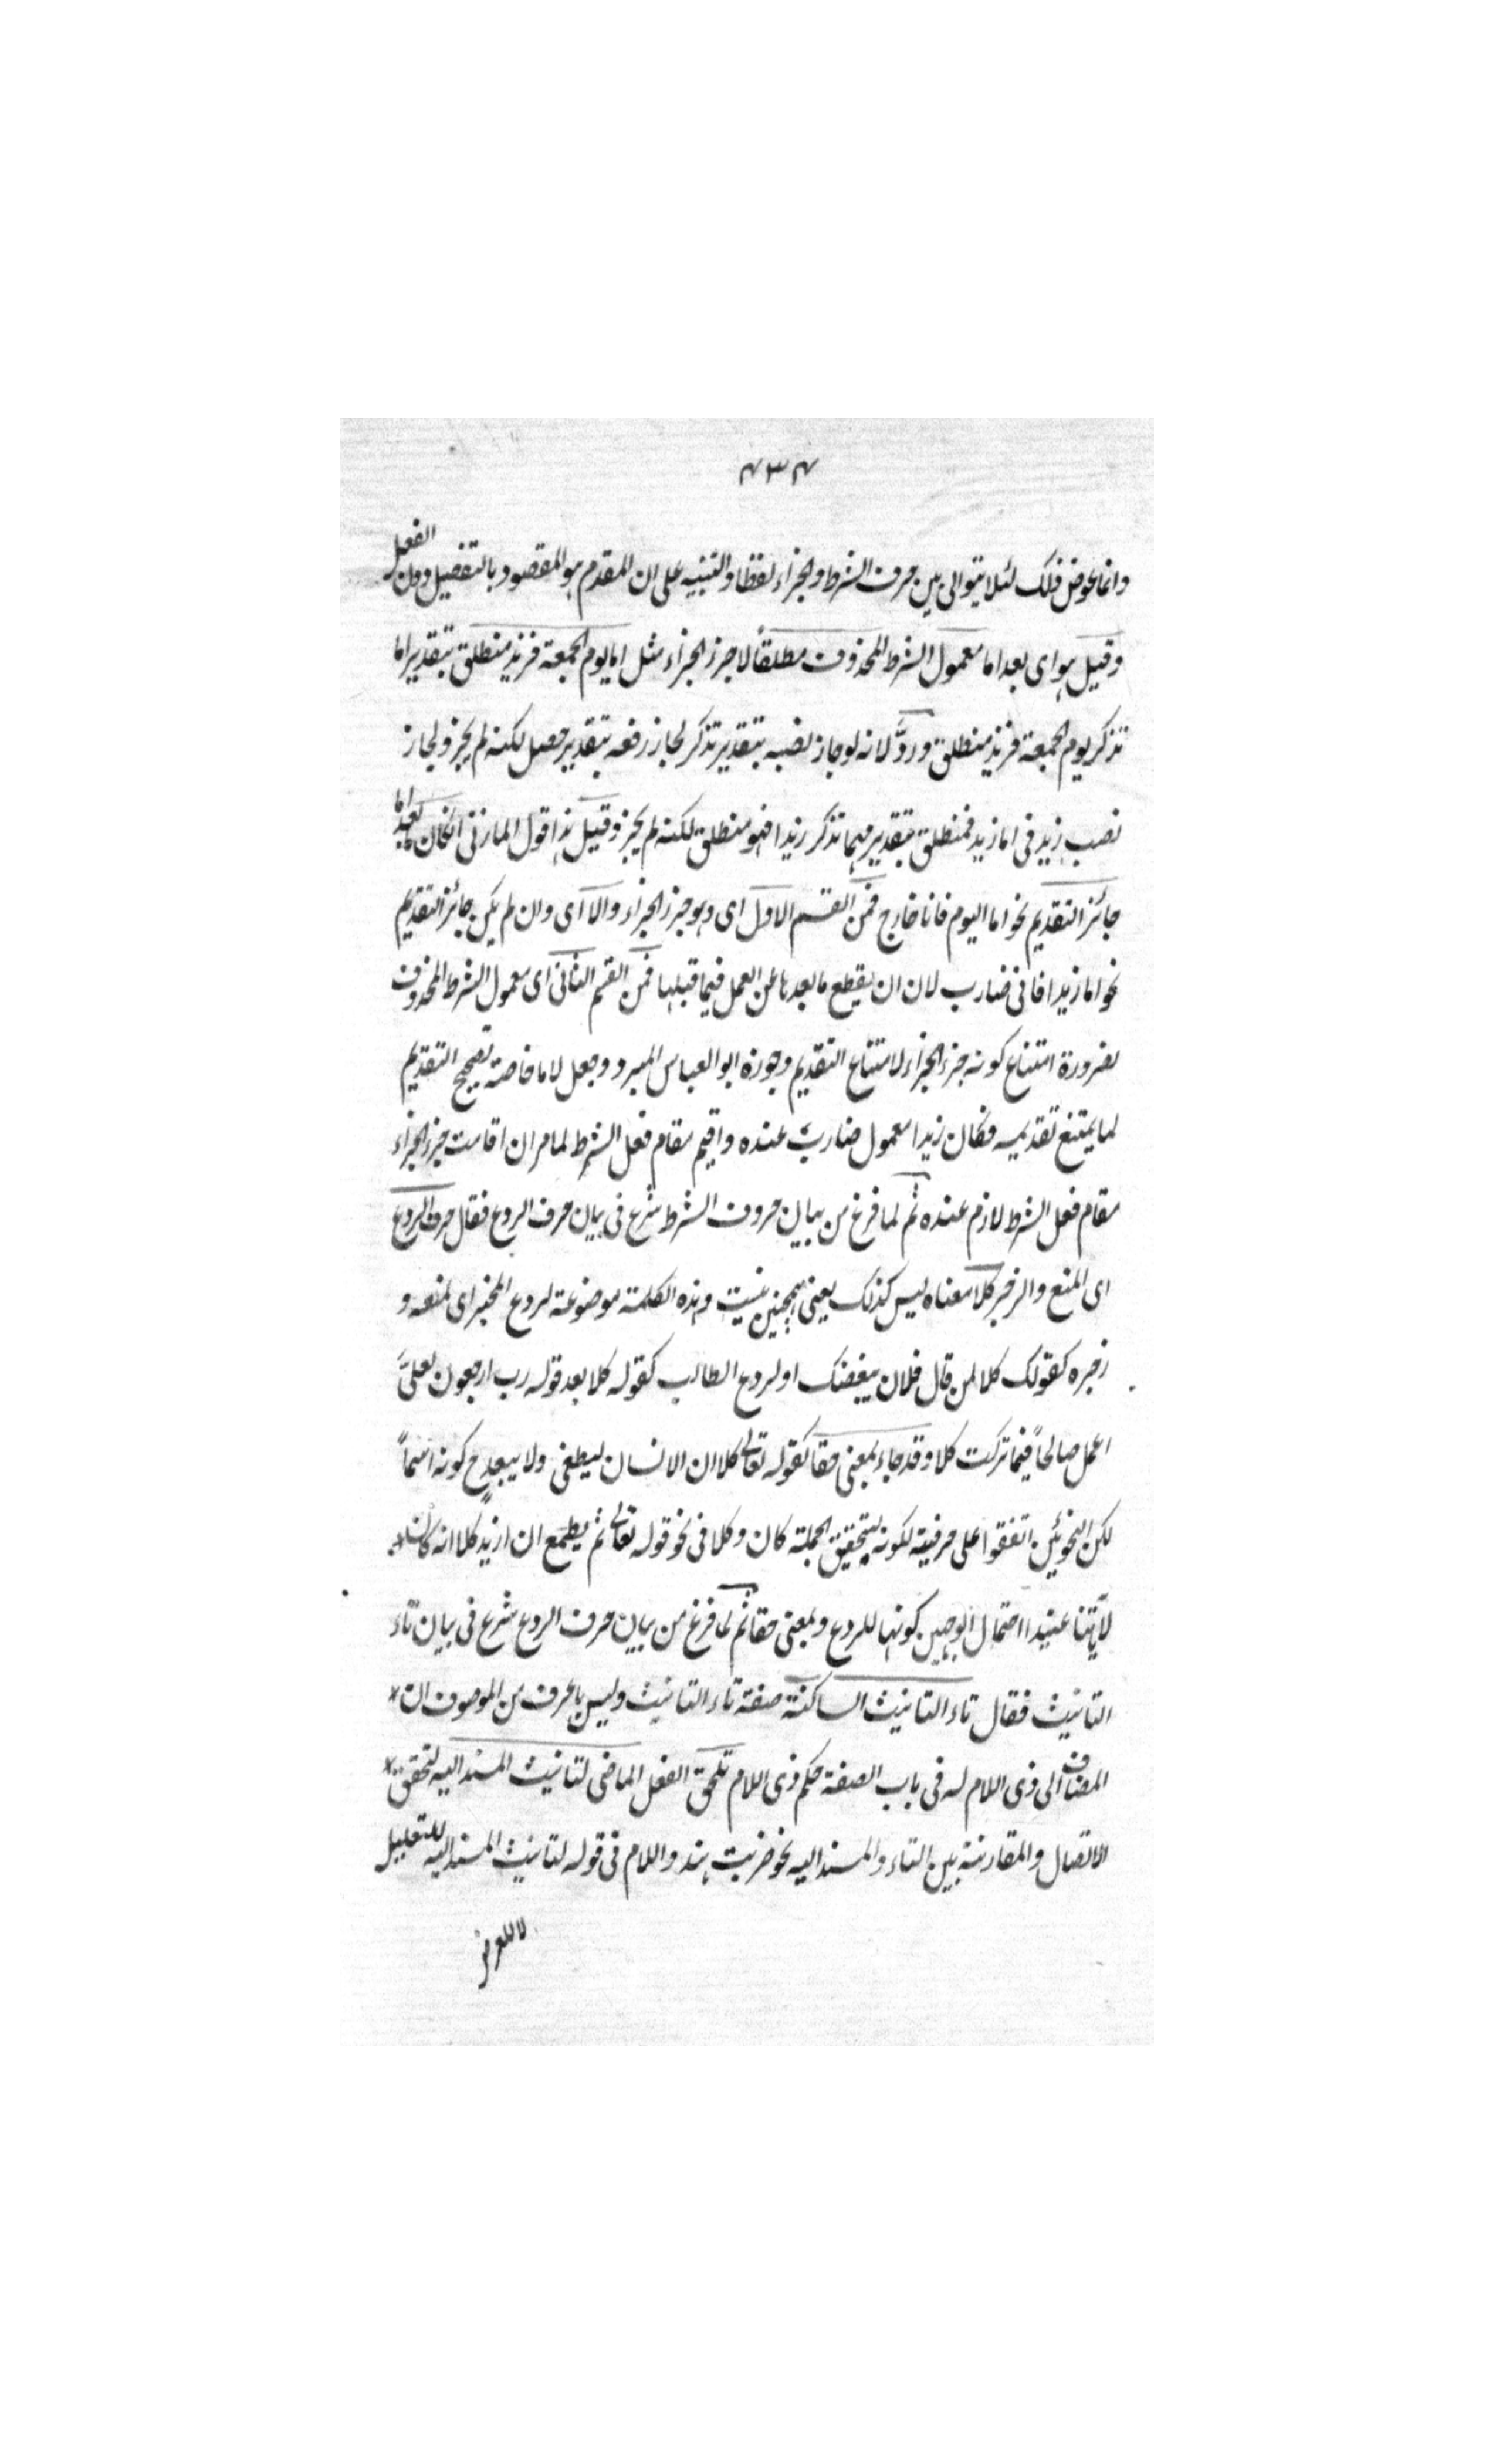 ۴۳۴
وانما عوض ذلك لئلا يتوالى بين حرف الشرط والجزاء لفظا والتنبيه على ان المقدم هو المقصود بالتفصيل دون الفعل
وقيل هو اى بعد اما معمول الشرط المحذوف مطلقاً لا جزء الجزاء مثل اما يوم الجمعة فزيد منطلق بتقدير اما
تذكر يوم الجمعة فزيد منطلق وردَّ لانه لو جاز نصبه بتقدير تذكر لجاز رفعه بتقدير حصل لكنه لم يجز ولجاز
نصب زيد فى اما زيد فمنطلق بتقدير مهما تذكر زيدا فهو منطلق لكنه لم يجز وقيل هذا قول المازنى ان كان ما بعد اما
جائز التقديم نحو اما اليوم فانا خارج فمن القسم الاول اى وهو جزء الجزاء والا اى وان لم يكن جائز التقديم
نحو اما زيدا فانى ضارب لان ان يقطع ما بعدها عن العمل فيما قبلها فمن القسم الثانى اى معمول الشرط المحذوف
لضرورة امتناع كونه جزء الجزاء لامتناع التقديم وجوزه ابو العباس المبرد وجعل لاما خاصة تصحيح التقديم
لما يمتنع تقديمه فكان زيدا معمول ضارب عنده واقيم مقام فعل الشرط لما مر ان اقامت جزء الجزاء
مقام فعل الشرط لازم عنده ثم لما فرغ من بيان حروف الشرط شرع فى بيان حرف الردع فقال حرف الردع
اى المنع والزجر كلا معناه ليس كذلك يعنى همچنين نيست وهذه الكلمة موضوعة لردع المخبر اى لمنعه و
زجره كقولك كلا لمن قال فلان يبغضك او لردع الطالب كقوله كلا بعد قوله رب ارجعون لعلىَّ
اعمل صالحاً فيما تركت كلا وقد جاء بمعنى حقا كقوله تعالى كلا ان الانسان ليطغى ولا يبعد ح كونه اسماً
لكن النحويين اتفقوا على حرفيته لكونه لتحقيق الجملة كان وكلا فى نحو قوله تعالى ثم يطمع ان ازيد كلا انه كان
لآياتنا عنيدا احتمال الوجهين كونها للردع وبمعنى حقا ثم لما فرغ من بيان حرف الردع شرع فى بيان تاء
التانيث فقال تاء التانيث الساكنة صفة تاء التانيث وليس باعرف من الموصوف لان
المضاف الى ذى اللام له فى باب الصفة حكم ذى اللام تلحق الفعل الماضى لتانيث المسند اليه لتحقق
الاتصال والمقارنة بين التاء والمسند اليه نحو ضربت هند واللام فى قوله لتانيث المسند اليه للتعليل
لا للغرض